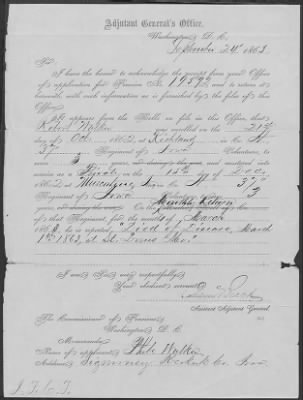 Adjutant General's Office,
Washington, D. C.
September 24th 1863.
Sir:
I have the honor to acknowledge the receipt from your Office
of application for Pension No. 19892, and to return it
herewith, with such information as is furnished by the files of this
Office.
It appears from the Rolls on file in this Office, that
Robert was enrolled on the 20th
day of Oct, 1862, at Richland in Co. H,
37th Regiment of Iowa Volunteers, to
serve 3 years, and mustered into
service as a Private on the 15th day of Dec.
1862, at Muscatine, Iowa in Co. H, 37th
Regiment of Iowa
On the Monthly Return
of that Regiment, for the month of March
1863, he is reported "Died of Disease, March
1st 1863, at St. Louis Mo."
I am Sir, very respectfully,
Your obedient servant,
Assistant Adjutant General.
The Commissioner of Pensions,
Washington, D. C.
Memoranda:
Name of applicant,
Address, Sigourney Keokuk Co. Iowa